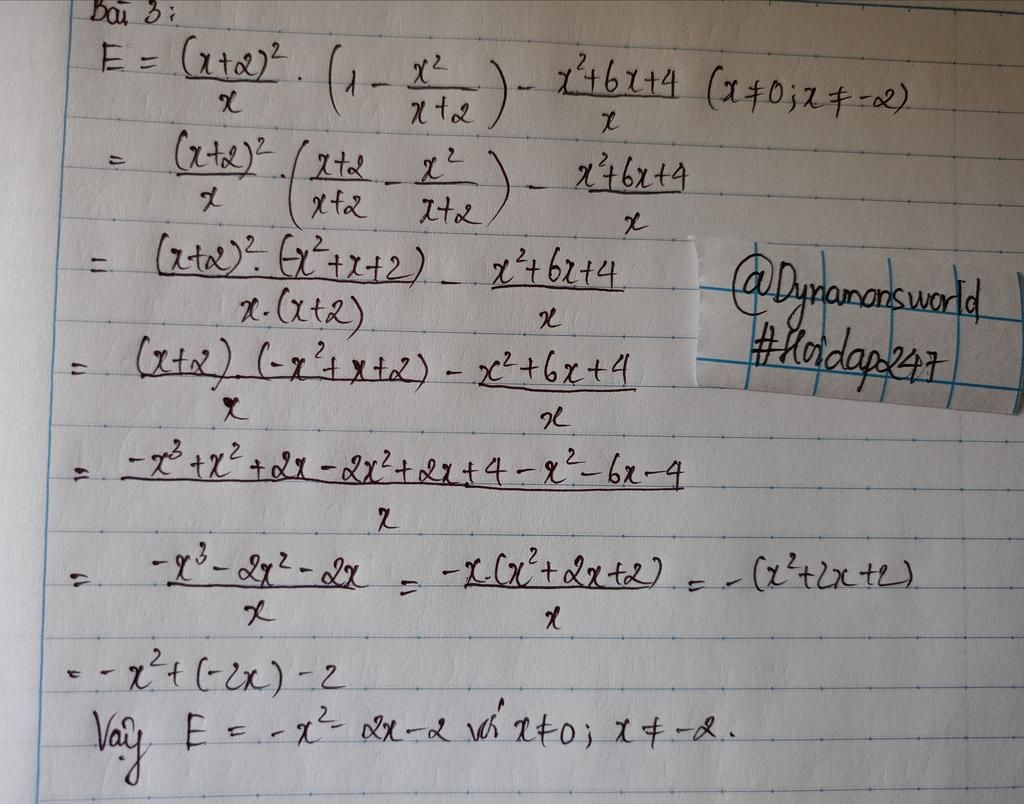 Bài 3:
E = (x+2)²/x · (1 - x²/(x+2)) - (x²+6x+4)/x (x≠0; x≠-2)
= (x+2)²/x · ((x+2)/(x+2) - x²/(x+2)) - (x²+6x+4)/x
= (x+2)²·(-x²+x+2)/(x·(x+2)) - (x²+6x+4)/x
@Dynamonsworld
#Hoidap247
= (x+2)(-x²+x+2)/x - (x²+6x+4)/x
= (-x³+x²+2x-2x²+2x+4-x²-6x-4)/x
= (-x³-2x²-2x)/x = -x·(x²+2x+2)/x = -(x²+2x+2)
= -x²+(-2x)-2
Vậy E = -x²-2x-2 với x≠0; x≠-2.